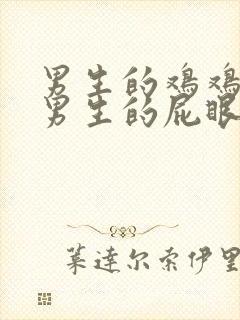 男生的鸡鸡
男生的屁眼
莱达尔索伊里